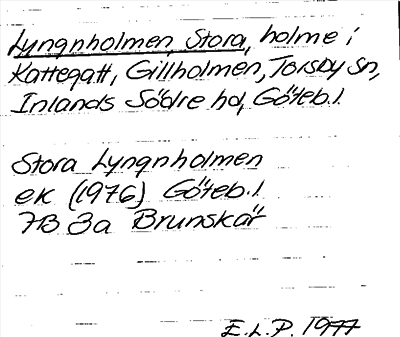 Lyngnholmen, Stora, holme i
Kattegatt, Gillholmen, Torsby sn,
Inlands Södre hd, Göteb. l.
Stora Lyngnholmen
ek (1976) Göteb. l.
7B 3a Brunskär
E.L.P. 1977